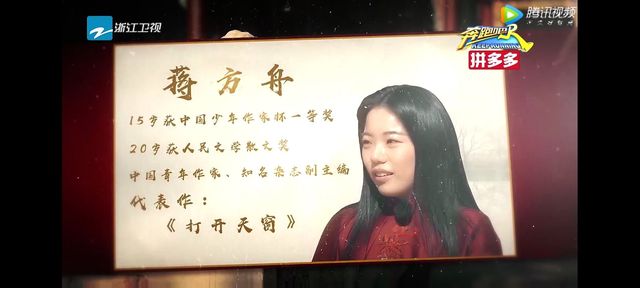 浙江卫视
奔跑吧
KEEP RUNNING
腾讯视频
拼多多
蒋方舟
15岁获中国少年作家杯一等奖
20岁获人民文学散文奖
中国青年作家、知名杂志副主编
代表作：
《打开天窗》